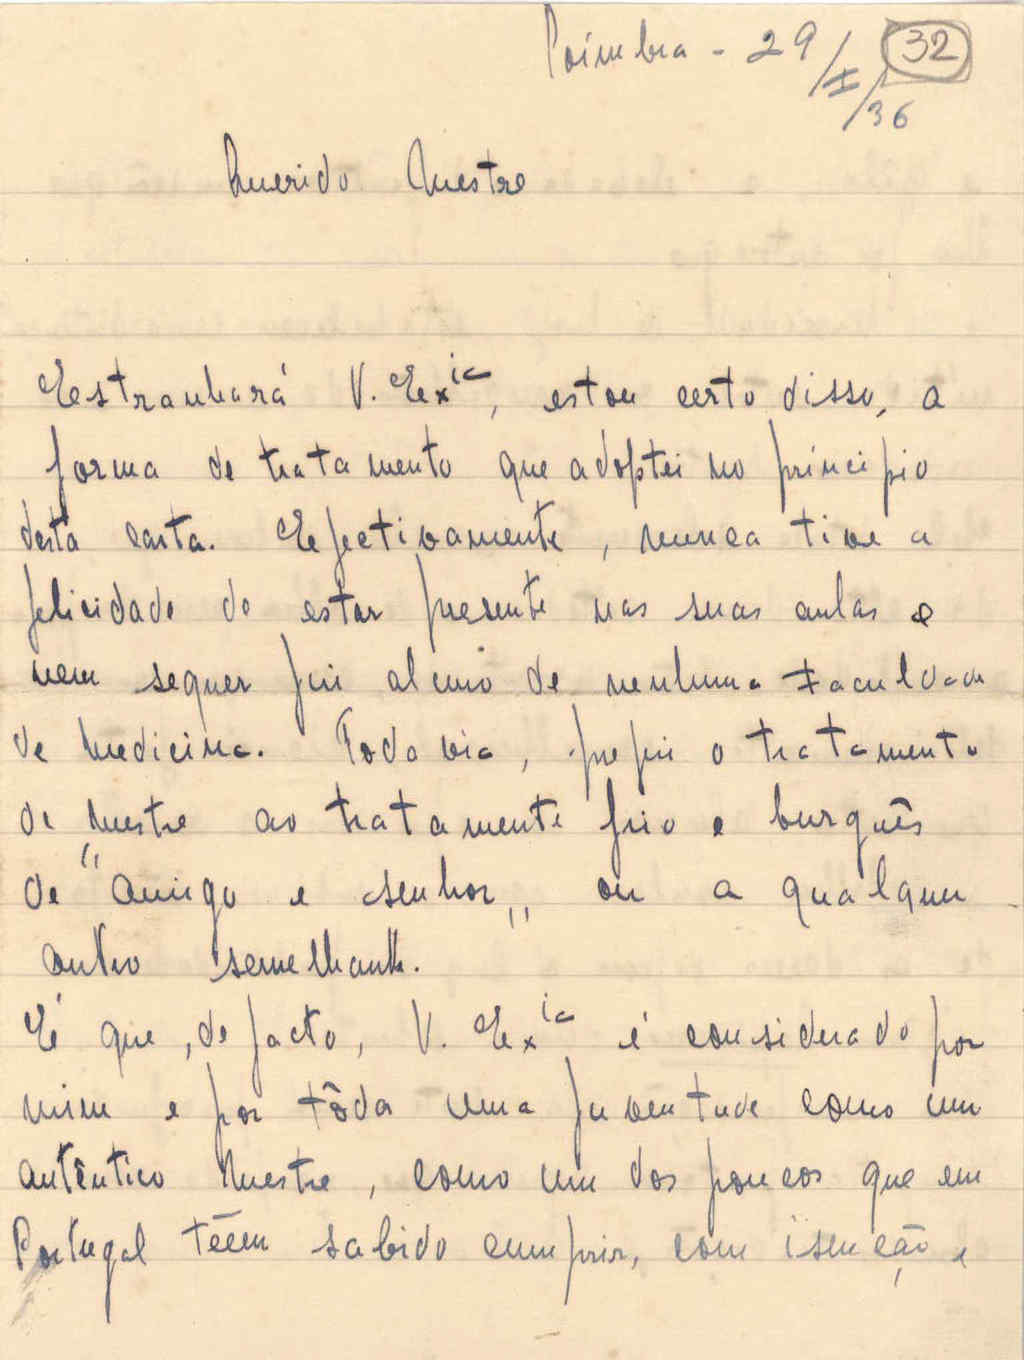 Coimbra - 29/I/36
32
Querido Mestre
Estranhará V. Exia, estou certo disso, a
forma de tratamento que adoptei no princípio
desta carta. Efectivamente, nunca tive a
felicidade de estar presente nas suas aulas e
nem sequer fui aluno de nenhuma Faculdade
de Medicina. Todavia, prefiri o tratamento
de Mestre ao tratamento frio e burguês
de "amigo e senhor„ ou a qualquer
outro semelhante.
É que, de facto, V. Exia é considerado por
mim e por tôda uma juventude como um
autêntico Mestre, como um dos poucos que em
Portugal têem sabido cumprir, com isenção e